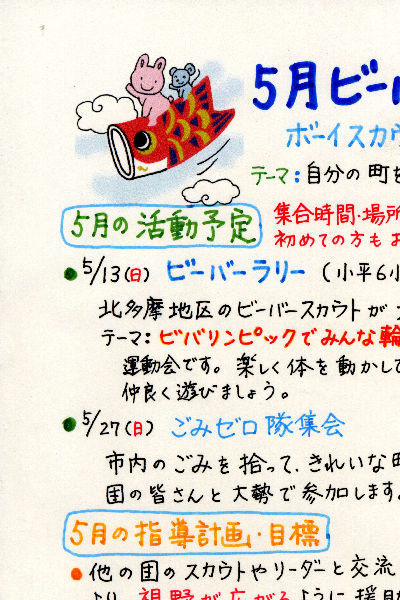 5月ビー
ボーイスカ
テーマ:自分の町を
5月の活動予定
集合時間・場所
初めての方もお
5/13(日) ビーバーラリー (小平6小
北多摩地区のビーバースカウトが
テーマ:ビバリンピックでみんな輪
運動会です。楽しく体を動かして
仲良く遊びましょう。
5/27(日) ごみゼロ隊集会
市内のごみを拾って、きれいな町
団の皆さんと大勢で参加します。
5月の指導計画・目標
他の団のスカウトやリーダーと交流
より、視野が広がるように援助